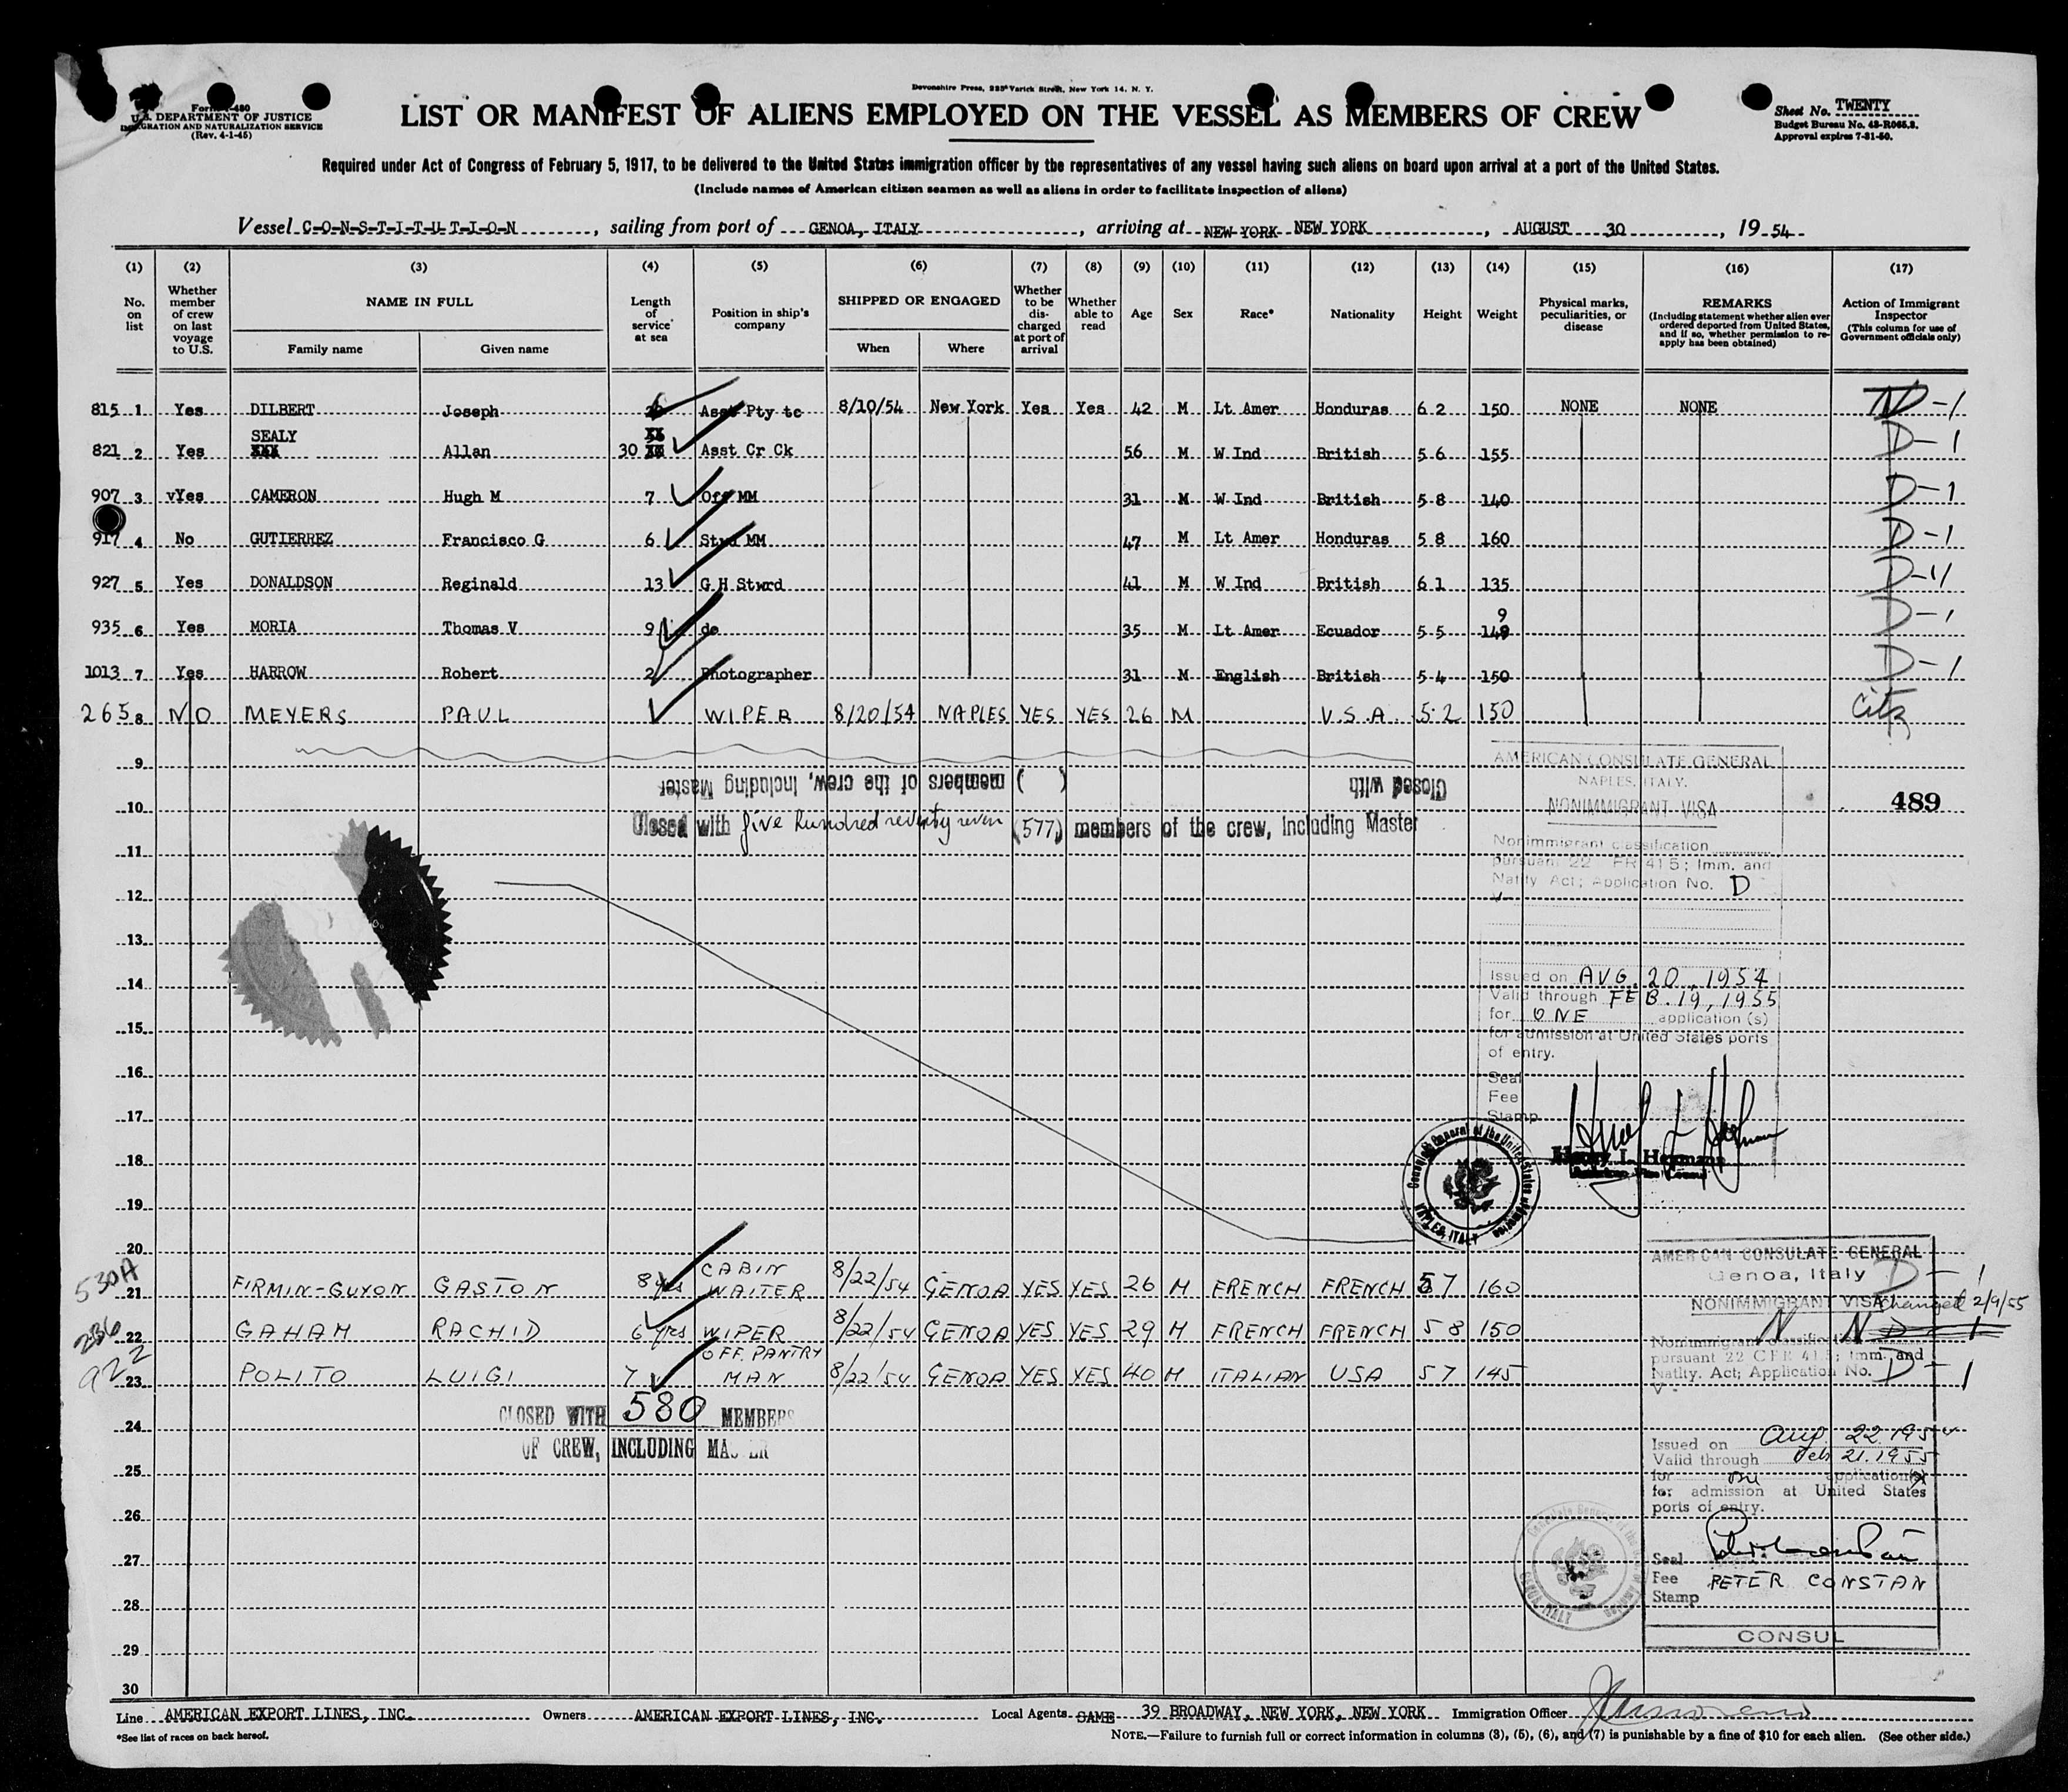 Devonshire Press, 225 Varick Street, New York 14, N. Y.
Form I-480
U.S. DEPARTMENT OF JUSTICE
IMMIGRATION AND NATURALIZATION SERVICE
(Rev. 4-1-45)
LIST OR MANIFEST OF ALIENS EMPLOYED ON THE VESSEL AS MEMBERS OF CREW
Sheet No. TWENTY
Budget Bureau No. 43-R065.2.
Approval expires 7-31-50.
Required under Act of Congress of February 5, 1917, to be delivered to the United States immigration officer by the representatives of any vessel having such aliens on board upon arrival at a port of the United States.
(Include names of American citizen seamen as well as aliens in order to facilitate inspection of aliens)
Vessel C-O-N-S-T-I-T-U-T-I-O-N, sailing from port of GENOA, ITALY, arriving at NEW YORK NEW YORK, AUGUST 30, 1954
(1) (2) (3) (4) (5) (6) (7) (8) (9) (10) (11) (12) (13) (14) (15) (16) (17)
No. on list
Whether member of crew on last voyage to U.S.
NAME IN FULL
Family name Given name
Length of service at sea
Position in ship's company
SHIPPED OR ENGAGED
When Where
Whether to be discharged at port of arrival
Whether able to read
Age
Sex
Race*
Nationality
Height
Weight
Physical marks, peculiarities, or disease
REMARKS
(Including statement whether alien ever ordered deported from United States, and if so, whether permission to reapply has been obtained)
Action of Immigrant Inspector
(This column for use of Government officials only)
815 1 Yes DILBERT Joseph Asst Pty tc 8/10/54 New York Yes Yes 42 M Lt Amer Honduras 6 2 150 NONE NONE D-1
821 2 Yes SEALY Allan 30 Asst Cr Ck 56 M W Ind British 5 6 155 D-1
907 3 vYes CAMERON Hugh M 7 Off MM 31 M W Ind British 5 8 140 D-1
917 4 No GUTIERREZ Francisco G 6 Stwd MM 47 M Lt Amer Honduras 5 8 160 D-1
927 5 Yes DONALDSON Reginald 13 G H Stwrd 41 M W Ind British 6 1 135 D-1
935 6 Yes MORIA Thomas V 9 do 35 M Lt Amer Ecuador 5 5 149 9 D-1
1013 7 Yes HARROW Robert 2 Photographer 31 M English British 5 4 150 D-1
265 8 NO MEYERS PAUL WIPER 8/20/54 NAPLES YES YES 26 M U.S.A. 5.2 150 Citz
9
members of the crew, including Master ( ) Closed with
10
489
Closed with five hundred seventy seven (577) members of the crew, including Master
AMERICAN CONSULATE GENERAL
NAPLES, ITALY.
NONIMMIGRANT VISA
Nonimmigrant classification
pursuant 22 CFR 41.5; Imm. and
Natlty Act; Application No. D
V-
11
12
13
14
15
16
17
18
19
20
Issued on AUG. 20, 1954
Valid through FEB. 19, 1955
for ONE application (s)
for admission at United States ports
of entry.
Seal
Fee
Stamp
Henry L. Heymann
American Vice Consul
Consulate General of the United States of America
NAPLES, ITALY
530A 21 FIRMIN-GUYON GASTON 8 yrs CABIN WAITER 8/22/54 GENOA YES YES 26 M FRENCH FRENCH 5 7 160 D-1
236 22 GAHAM RACHID 6 yrs WIPER 8/22/54 GENOA YES YES 29 M FRENCH FRENCH 5 8 150 N N D-1
changed 2/9/55
922 23 POLITO LUIGI 7 OFF. PANTRY MAN 8/22/54 GENOA YES YES 40 M ITALIAN USA 5 7 145 D-1
24
CLOSED WITH 580 MEMBERS
OF CREW, INCLUDING MASTER
25
26
27
28
29
30
AMERICAN CONSULATE GENERAL
Genoa, Italy
NONIMMIGRANT VISA
Nonimmigrant classification
pursuant 22 CFR 41.5; Imm. and
Natlty. Act; Application No.
V-
Issued on Aug. 22 1954
Valid through Feb 21. 1955
for one application(s)
for admission at United States
ports of entry.
Seal
Fee
Stamp
PETER CONSTAN
CONSUL
GENOA, ITALY
Line AMERICAN EXPORT LINES, INC. Owners AMERICAN EXPORT LINES, INC. Local Agents SAME 39 BROADWAY, NEW YORK, NEW YORK Immigration Officer
*See list of races on back hereof.
NOTE.—Failure to furnish full or correct information in columns (3), (5), (6), and (7) is punishable by a fine of $10 for each alien. (See other side.)